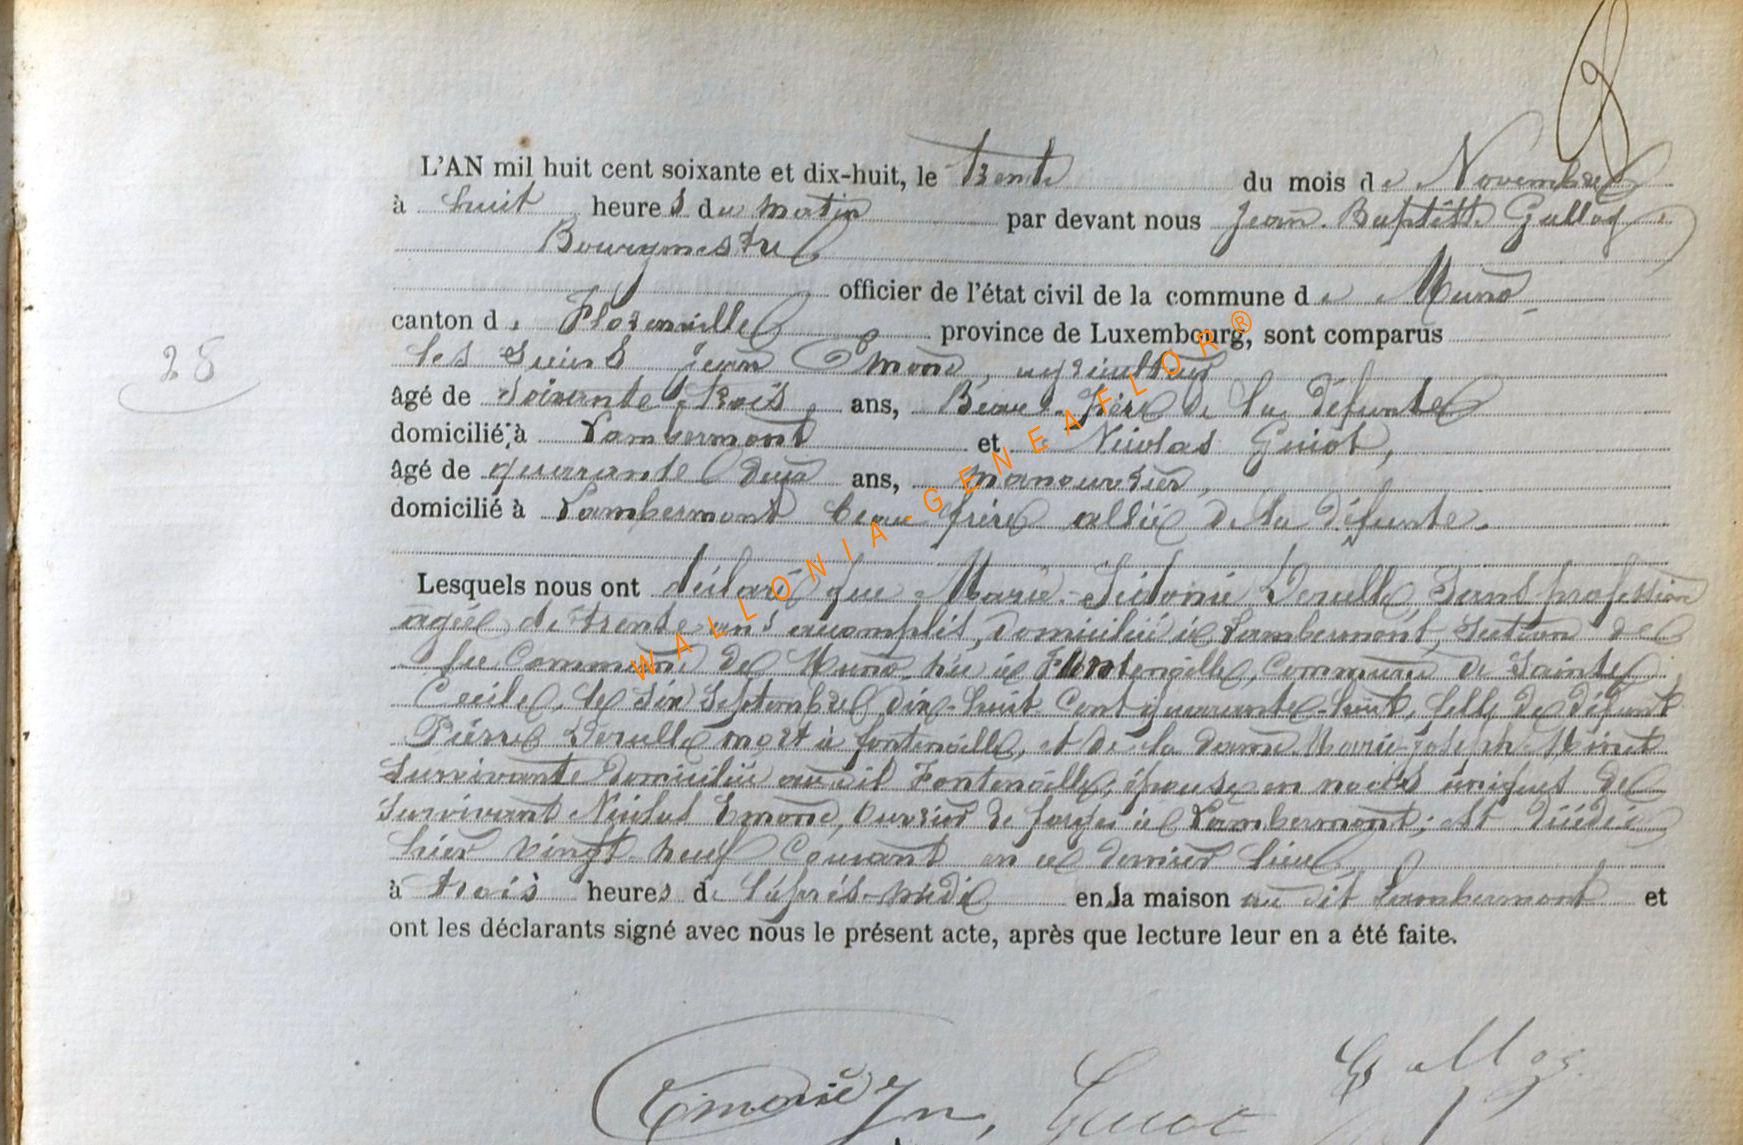 L'AN mil huit cent soixante et dix-huit, le trente du mois de Novembre
à huit heures du matin par devant nous Jean-Baptiste Golloy
Bourgmestre
officier de l'état civil de la commune de Muno
canton de Florenville province de Luxembourg, sont comparus
les sieurs Jean Emond, agriculteur
âgé de soixante-trois ans, Beau-Père de la défunte
domicilié à Lambermont et Nicolas Guiot,
âgé de quarante deux ans, manouvrier,
domicilié à Lambermont beau frère allié de la défunte.
Lesquels nous ont déclaré que Marie-Sidonie Deulle, sans profession
agée de trente ans accomplis, domiciliée à Lambermont, section de
la Commune de Muno, née à Fontenoille, Commune de Sainte
Cecile, le six Septembre dix-huit cent quarante-huit, fille de défunt
Pierre mort à fontenoille, et de la dame Marie-Joseph Minet
survivante domiciliée au dit Fontenoille, épouse en noces uniques de
survivant Nicolas Emond, ouvrier de forges à Lambermont; est décédée
hier vingt-neuf courant en ce dernier lieu
à trois heures de l'après-midi en la maison au dit Lambermont et
ont les déclarants signé avec nous le présent acte, après que lecture leur en a été faite.
28
Emond Jn, Guiot Golloy
WALLONIA-GENEAFLOR®